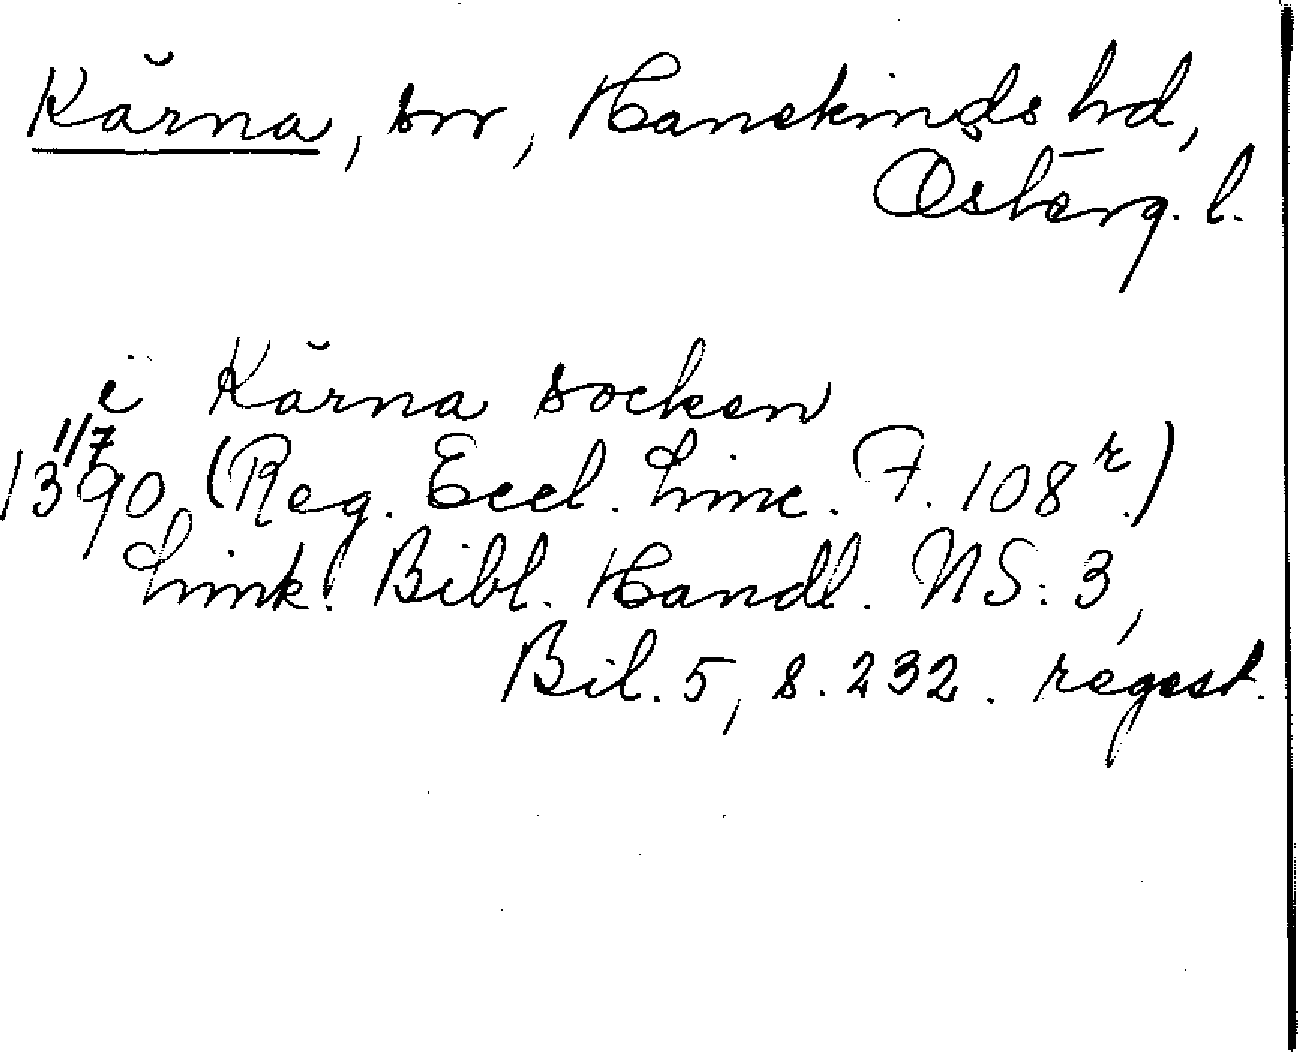 Kärna, sn, Hanekinds hd,
Österg. l.
i Kärna socken
1/7
1390 (Reg. Eccl. Linc. F. 108 r.)
Link. Bibl. Handl. NS: 3,
Bil. 5, s. 232. regest.